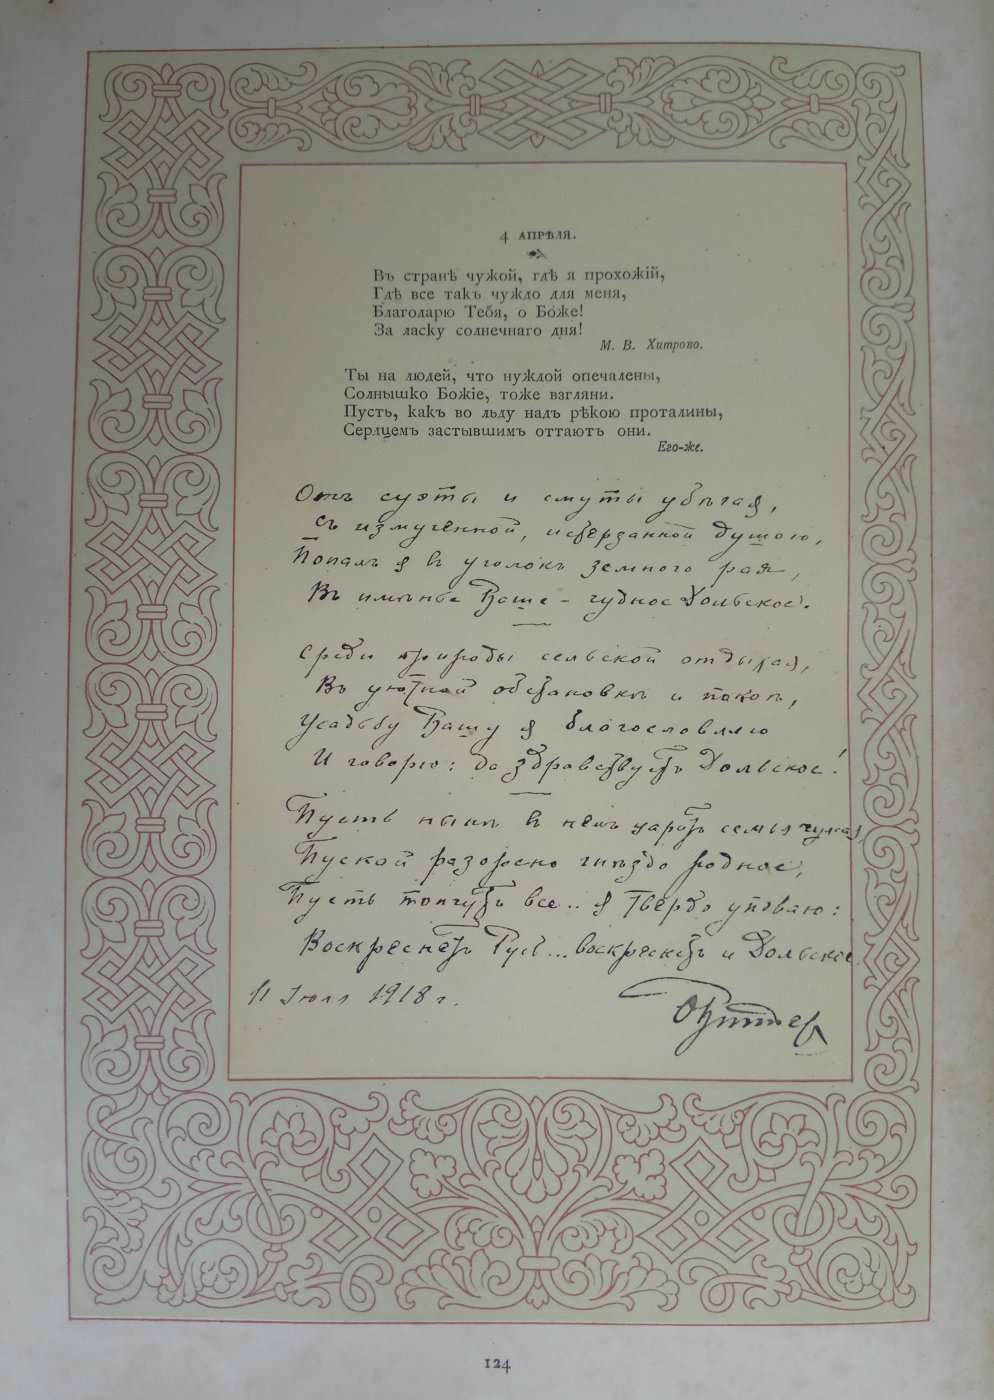 4 АПРѢЛЯ.
Въ странѣ чужой, гдѣ я прохожій,
Гдѣ все такъ чуждо для меня,
Благодарю Тебя, о Боже!
За ласку солнечнаго дня!
М. В. Хитрово.
Ты на людей, что нуждой опечалены,
Солнышко Божіе, тоже взгляни.
Пусть, какъ во льду надъ рѣкою проталины,
Сердцемъ застывшимъ оттаютъ они.
Его-же.
Отъ суэты и смуты убѣгая,
Съ измученной, истерзанной душою,
Попалъ я въ уголокъ земного рая,
Въ имѣнье Ваше – чудное Дольское.
Среди природы сельской отдыхая,
Въ уютной обстановкѣ и покоѣ,
Усадьбу Вашу я благословляю
И говорю: да здравствуетъ Дольское!
Пусть нынѣ въ немъ царитъ семья чужая,
Пускай разорено гнѣздо родное,
Пусть топчутъ все.. я твердо уповаю:
Воскреснетъ Русь... воскреснетъ и Дольское
11 Іюля 1918 г.
124